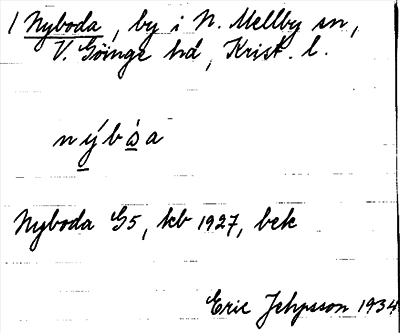 1 Nyboda, by i N. Mellby sn,
V. Göinge hd, Krist. l.
Nyboda G5, kb 1927, bek
Eric Jehpsson 1934